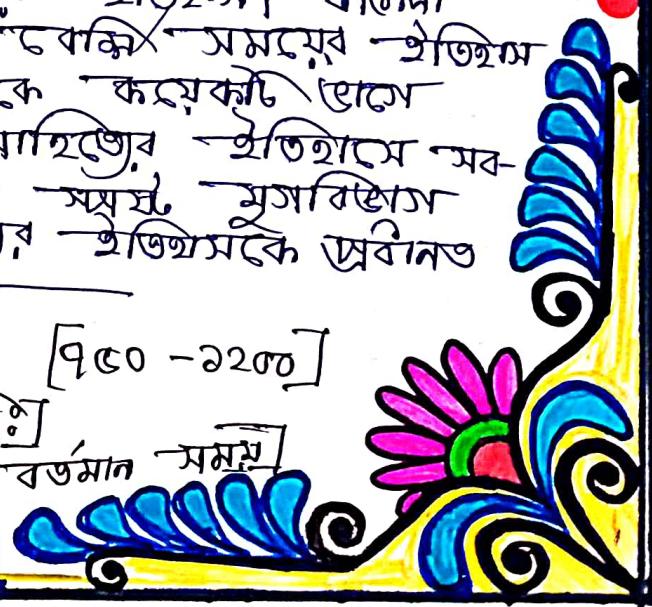 বেশি সময়ের ইতিহাস
কে কয়েকটি ভাগে
সাহিত্যের ইতিহাসে সব-
সময় যুগবিভাগ
র ইতিহাসকে প্রধানত
[৭৫০ - ১২০০]
বর্তমান সময়]